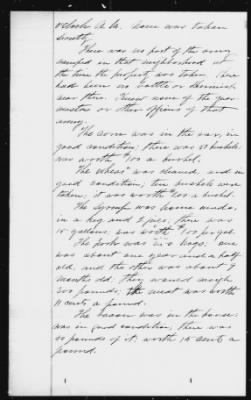 o'clock A. M. None was taken
secretly.
There was no part of the army
camped in that neighborhood at
the time the property was taken. There
had been no battle or skirmish
near there. Knew none of the quar
masters or other officers of that
army.
The corn was in the ear, in
good condition; there was 50 bushels.
was worth $1.00 a bushel.
The wheat was cleaned, and in
good condition, ten bushels were
taken; it was worth $ a bushel.
The syrup was home made,
in a keg and jugs, there was
15 gallons, was worth $1.00 pr gal.
The pork was in 2 hogs: one
was about one year and a half
old, and the other was about 9
months old; they weighed
300 pounds; the meat was worth
11 cents a pound.
The bacon was in the house
was in good condition, there was
50 pounds of it; worth 15 cents a
pound.